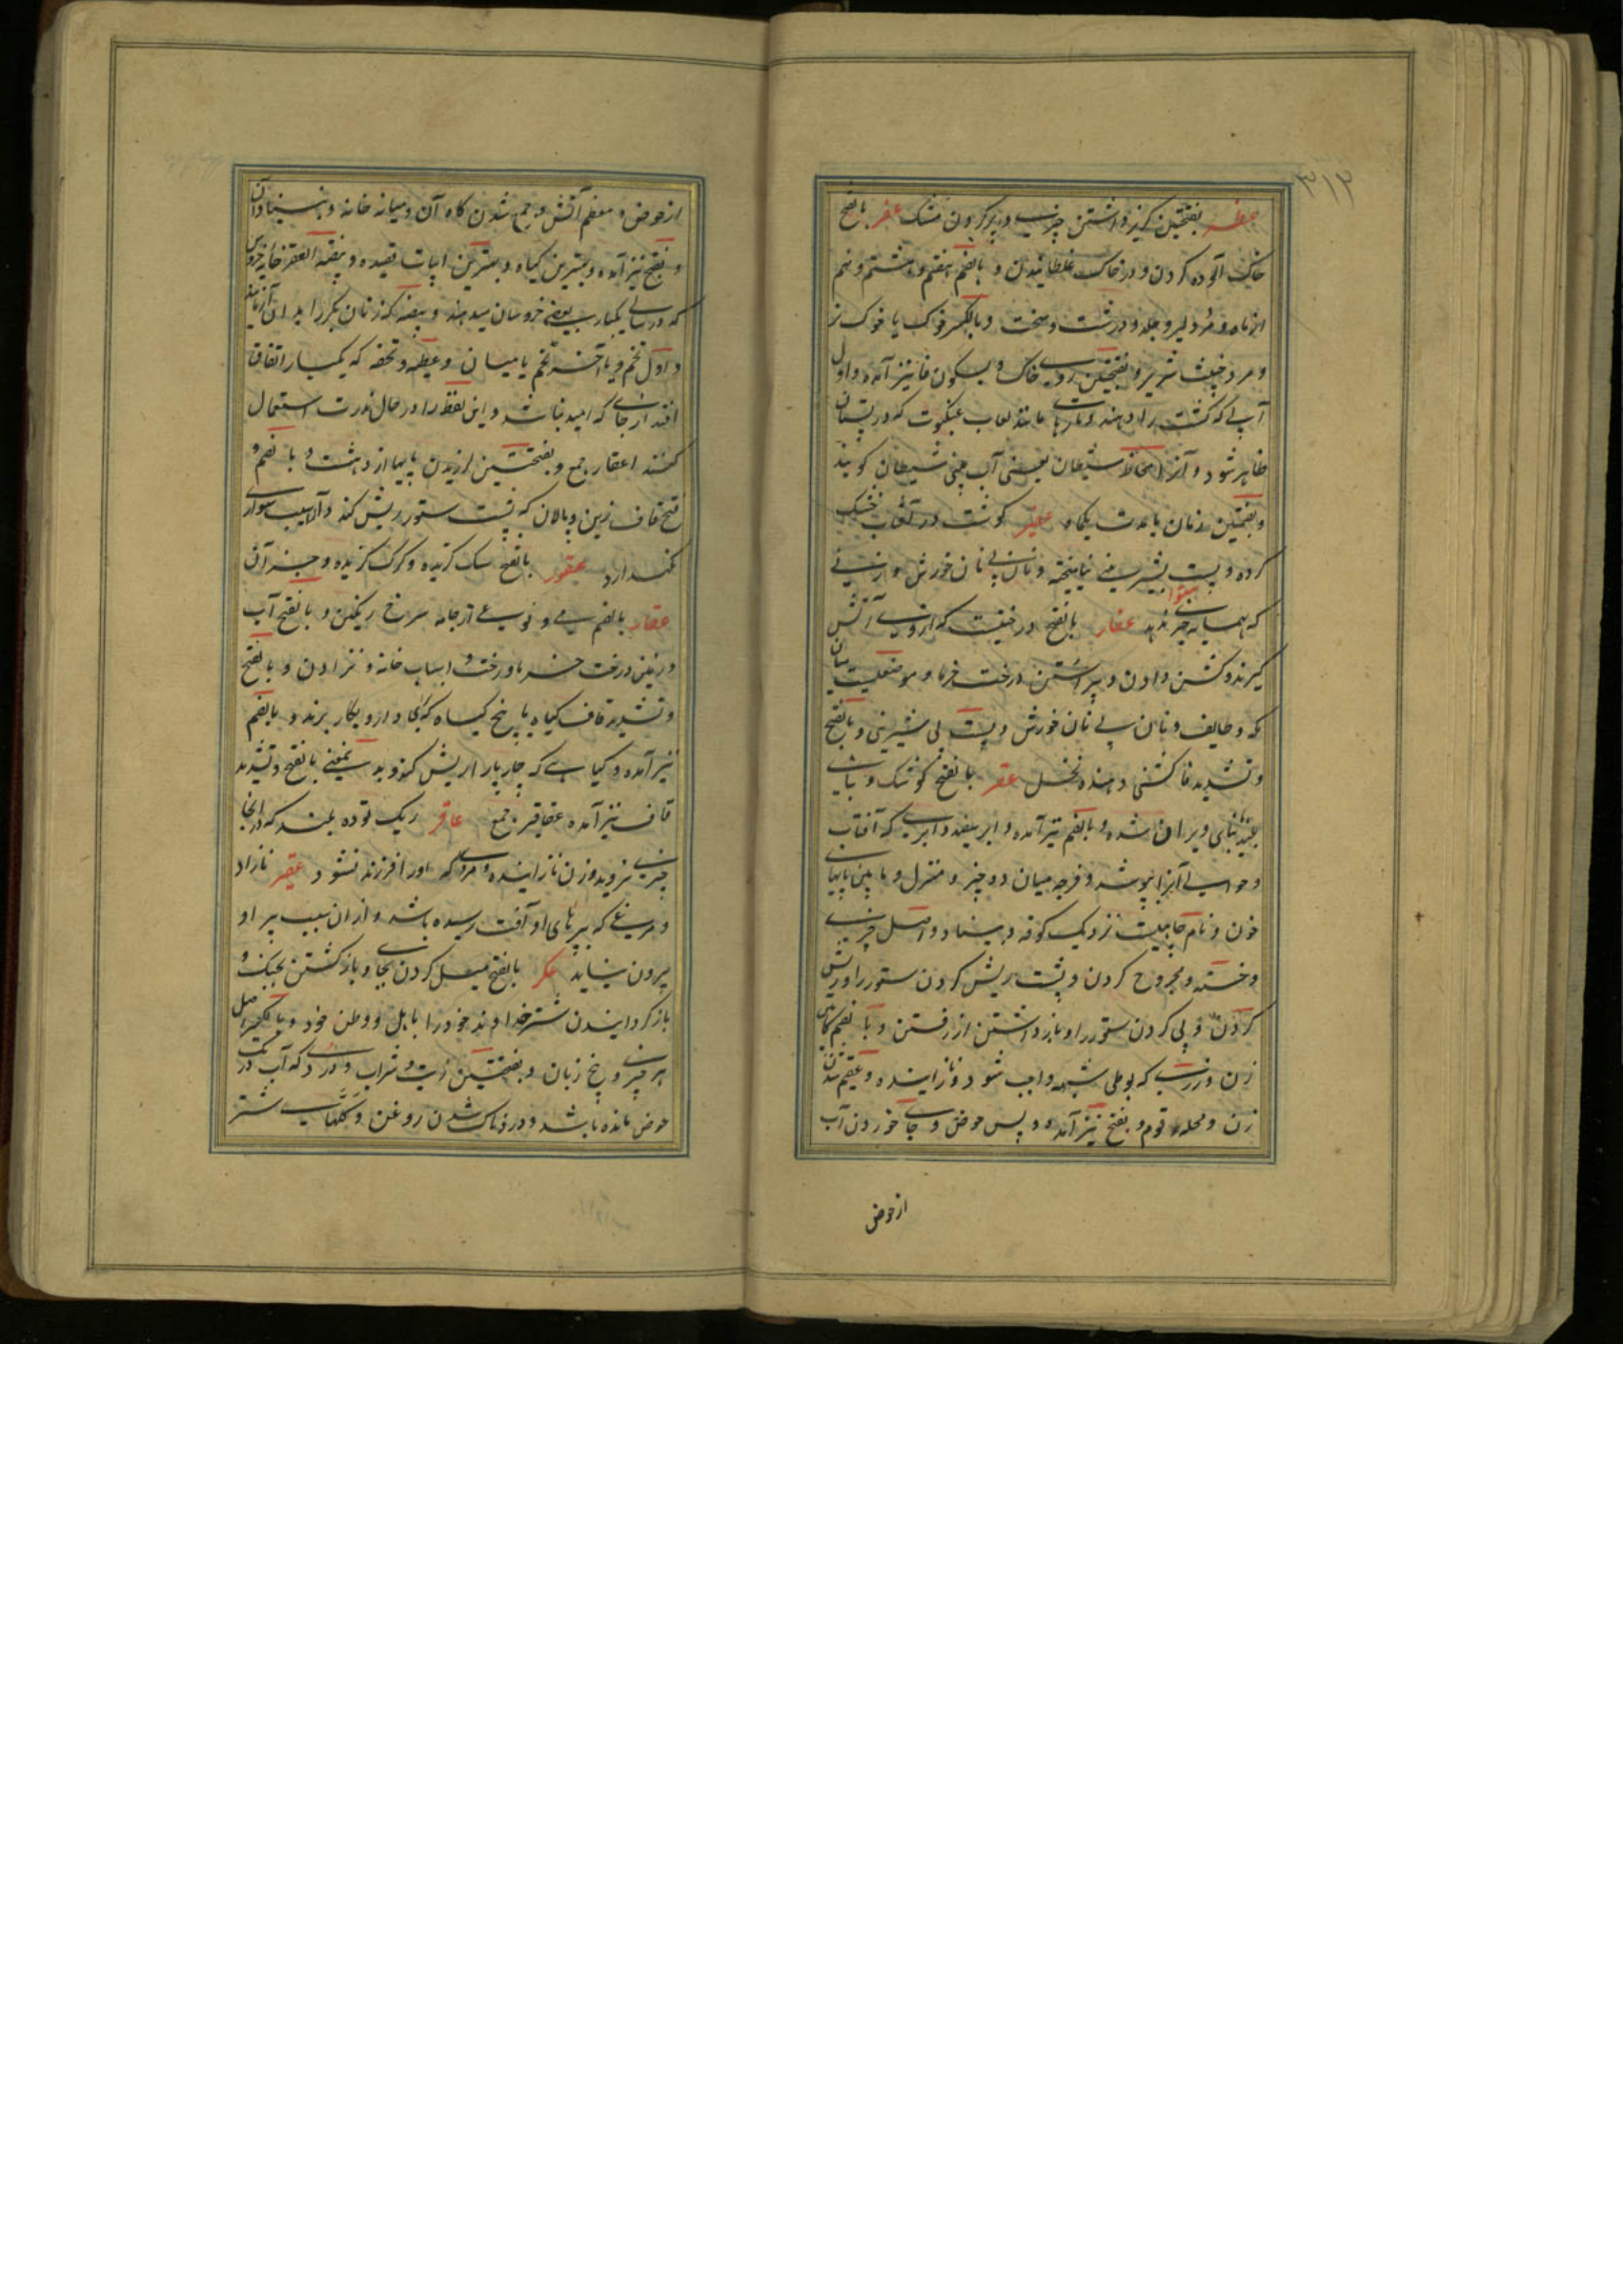 ۳۱۳
عظر بفتحتین کریز داشتن چیزی و پر کردن مشک عفر بالفتح
خاک آلوده کردن و در خاک غلطانیدن و بالضم هفتم و هشتم و نهم
از ماه و مرد دلیر و جلد و درشت و سخت و بالکسر خوک یا خوک نر
و مرد خبیث شریر و بفتحتین روی خاک و بسکون فا نیز آمده و اول
آبی که کشت را دهند و تارها مانند لعاب عنکبوت که در تابستان
ظاهر شود و آنرا مخاط شیطان یعنی آب بینی شیطان کویند
و بضمتین زمان یا مدت یکماه عفیر کوشت در آفتاب خشک
کرده و پست بشیرینی نیامیخته و نان بی نان خورش و زنی
که بهمسایه چیزی ندهد عفار بالفتح درختیست که ازوی آتش
کیرند و کشن دادن و پیراستن درخت خرما و موضعیست میان
مکه و طایف و نان بی نان خورش و پست بی شیرینی و بالفتح
و تشدید فا کشنی دهنده نخل عقر بالفتح کوشک و بنای
بلند بنای ویران شده و بالضم نیز آمده و ابر سفید و ابری که آفتاب
و حوالی آنرا بپوشد و فرجه میان دو چیز و منزل و مابین پایهای
خون و نام جاییست نزدیک کوفه و بنیاد و اصل چیزی
و خسته و مجروح کردن و پشت ریش کردن ستور را و ریش
کردن و پی کردن ستور را و باز داشتن از رفتن و بالضم کابین
زن و زری که بوطی شبهه واجب شود و نازاینده و عقیم شدن
زن و محله قوم و بفتح نیز آمده و پس حوض و جای خوردن آب
از حوض
از حوض و معظم آتش و جمع شدن کاه آن و میانه خانه و بنیاد آن
و بفتح نیز آمده و بهترین کیاه و بهترین ابیات قصیده و بیضة العقر خایه خروس
که در سالی یکبار بعضی خروسان میدهند و بیضه که زنان بکر را بدان آزمایند
و اول تخم و یا آخر تخم یا میان و عطیه و تحفه که یکبار اتفاق
افتد از جای که امید نباشد و این لفظ را در حال ندرت استعمال
کنند اعقار جمع و بفتحتین لرزیدن پایها از دهشت و بالضم و
فتح قاف زین و پالان که پشت ستور ریش کند و آسیب سواری
نکهدارد عقور بالفتح سک کزنده و کرک کزنده و جز آن
عقار بالضم می و نوعی از جامه سرخ رنکین و بالفتح آب
و زمین درخت خرما و رخت و اسباب خانه و نزادن و بالفتح
و تشدید قاف کیاه یا بیخ کیاه که بجای دارو بکار برند و بالضم
نیز آمده و کیاهی که چارپا را ریش کند و بدین معنی بالفتح و تشدید
قاف نیز آمده عقاقیر جمع عاقر ریک توده بلند که در انجا
چیزی نروید و زن نازاینده و مردی که او را فرزند نشود عقیر نازاد
و مرغی که بپرهای او آفت رسیده باشد و از ان سبب پر او
بیرون نیاید عکر بالفتح میل کردن بجای و باز کشتن بجنک و
باز کردانیدن شتر خداوند خود را باهل و وطن خود و بالکسر اصل
هر چیز و بیخ زبان و بفتحتین زیت و شراب و دردی که آب در تک
حوض مانده باشد و دردناک شدن روغن و کلهای شتر